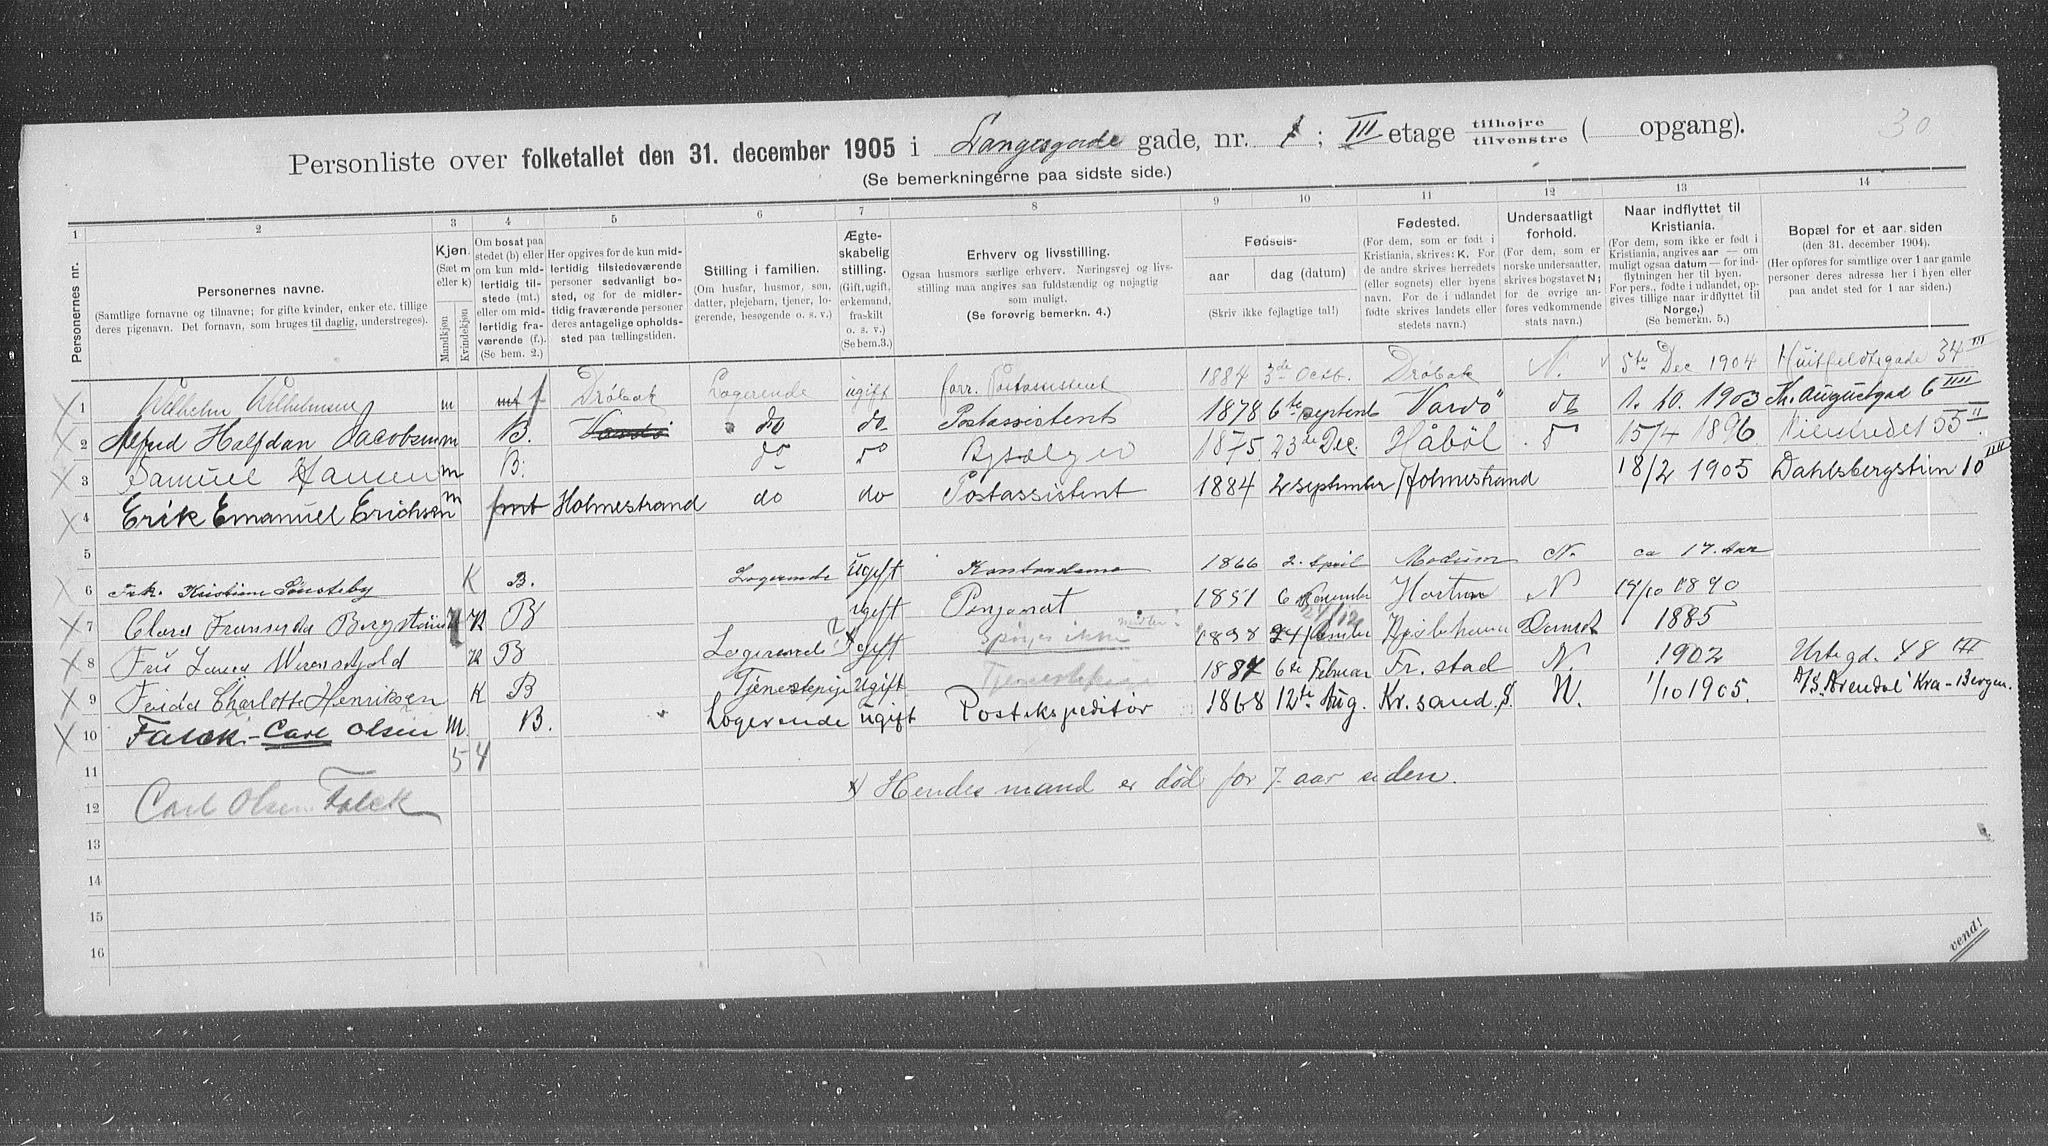 30
Personliste over folketallet den 31. december 1905 i Langesgade gade, nr. 1; III etage tilhøjre tilvenstre ( opgang).
(Se bemerkningerne paa sidste side.)
1 2 3 4 5 6 7 8 9 10 11 12 13 14
Personernes nr.
Personernes navne.
(Samtlige fornavne og tilnavne; for gifte kvinder, enker etc. tillige
deres pigenavn. Det fornavn, som bruges til daglig, understreges).
Kjøn.
(Sæt m
eller k)
Mandkjøn
Kvindekjøn
Om bosat paa
stedet (b) eller
om kun mid-
lertidig til-
stede (mt.)
eller om mid-
lertidig fra-
værende (f.).
(Se bem. 2.)
Her opgives for de kun mid-
lertidig tilstedeværende
personer sedvanligt bo-
sted, og for de midler-
tidig fraværende personer
deres antagelige opholds-
sted paa tællingstiden.
Stilling i familien.
(Om husfar, husmor, søn,
datter, plejebarn, tjener, lo-
gerende, besøgende o. s. v.)
Ægte-
skabelig
stilling.
(Gift, ugift,
enkemand,
fraskilt
o. s. v.)
(Se bem.3.)
Erhverv og livsstilling.
Ogsaa husmors særlige erhverv. Næringsvej og livs-
stilling maa angives saa fuldstændig og nøjagtig
som muligt.
(Se forøvrig bemerkn. 4.)
Fødsels-
aar dag (datum)
(Skriv ikke fejlagtige tal!)
Fødested.
(For dem, som er født i
Kristiania, skrives: K. For
de andre skrives herredets
(eller sognets) eller byens
navn. For de i udlandet
fødte skrives landets eller
stedets navn.)
Undersaatligt
forhold.
(For dem, som er
norske undersaatter,
skrives bogstavet N;
for de øvrige an-
føres vedkommende
stats navn.)
Naar indflyttet til
Kristiania.
(For dem, som ikke er født i
Kristiania, angives aar — om
muligt ogsaa datum — for ind-
flytningen her til byen.
For pers., fødte i udlandet, op-
gives tillige naar indflyttet til
Norge.)
(Se bemerkn. 5.)
Bopæl for et aar siden
(den 31. december 1904).
(Her opføres for samtlige over 1 aar gamle
personer deres adresse her i byen eller
paa andet sted for 1 aar siden.)
1 Wilhelm Wilhelmsen m mt f Drøbak Logerende ugift forr. Postassistent 1884 3de Octb. Drøbak N. 5te Dec 1904 Huitfeldtsgade 34 III
2 Alfred Halfdan Jacobsen m B. Vardö do do Postassistent 1878 6te septemb Vardö do 1. 10. 1903 Kr. Augustgad 6 IIII
3 Samuel Hansen m B. do do Bysælger 1875 23de Dec. Håböl do 15/4 1896 Pilestredet 55 II
4 Erik Emanuel Erichsen m f mt Holmestrand do do Postassistent 1884 2 september Holmestrand 18/2 1905 Dahlsbergstien 10 IIII
5
6 Frk. Kristiane Sønsteby K B. Logerende Ugift Kontordame 1866 2. April Modum N. ca 17. Aar
7 Clara Fransiska K B ugift Pensjonat 1851 6 November Horten N 14/10 1890
8 Fru K B Logerende x gift Spørges ikke midler 1838 24/ 24/12 Danmark 1885
9 Charlotte Henriksen K B Tjenestepige Ugift Tjenestepige 1887 6te Februar Fr. stad N. 1902 Urtegd. 48 III
10 Falck - Carl Olsen m B. Logerende ugift Postekspeditør 1868 12te Aug. Kr. sand. S. N. 1/10 1905. D/S. "Arendal" Kra - Bergen.
5 4
11
x) Hendes mand er død for 7 aar siden.
12 Carl Olsen Falck
13
14
15
16
vend!